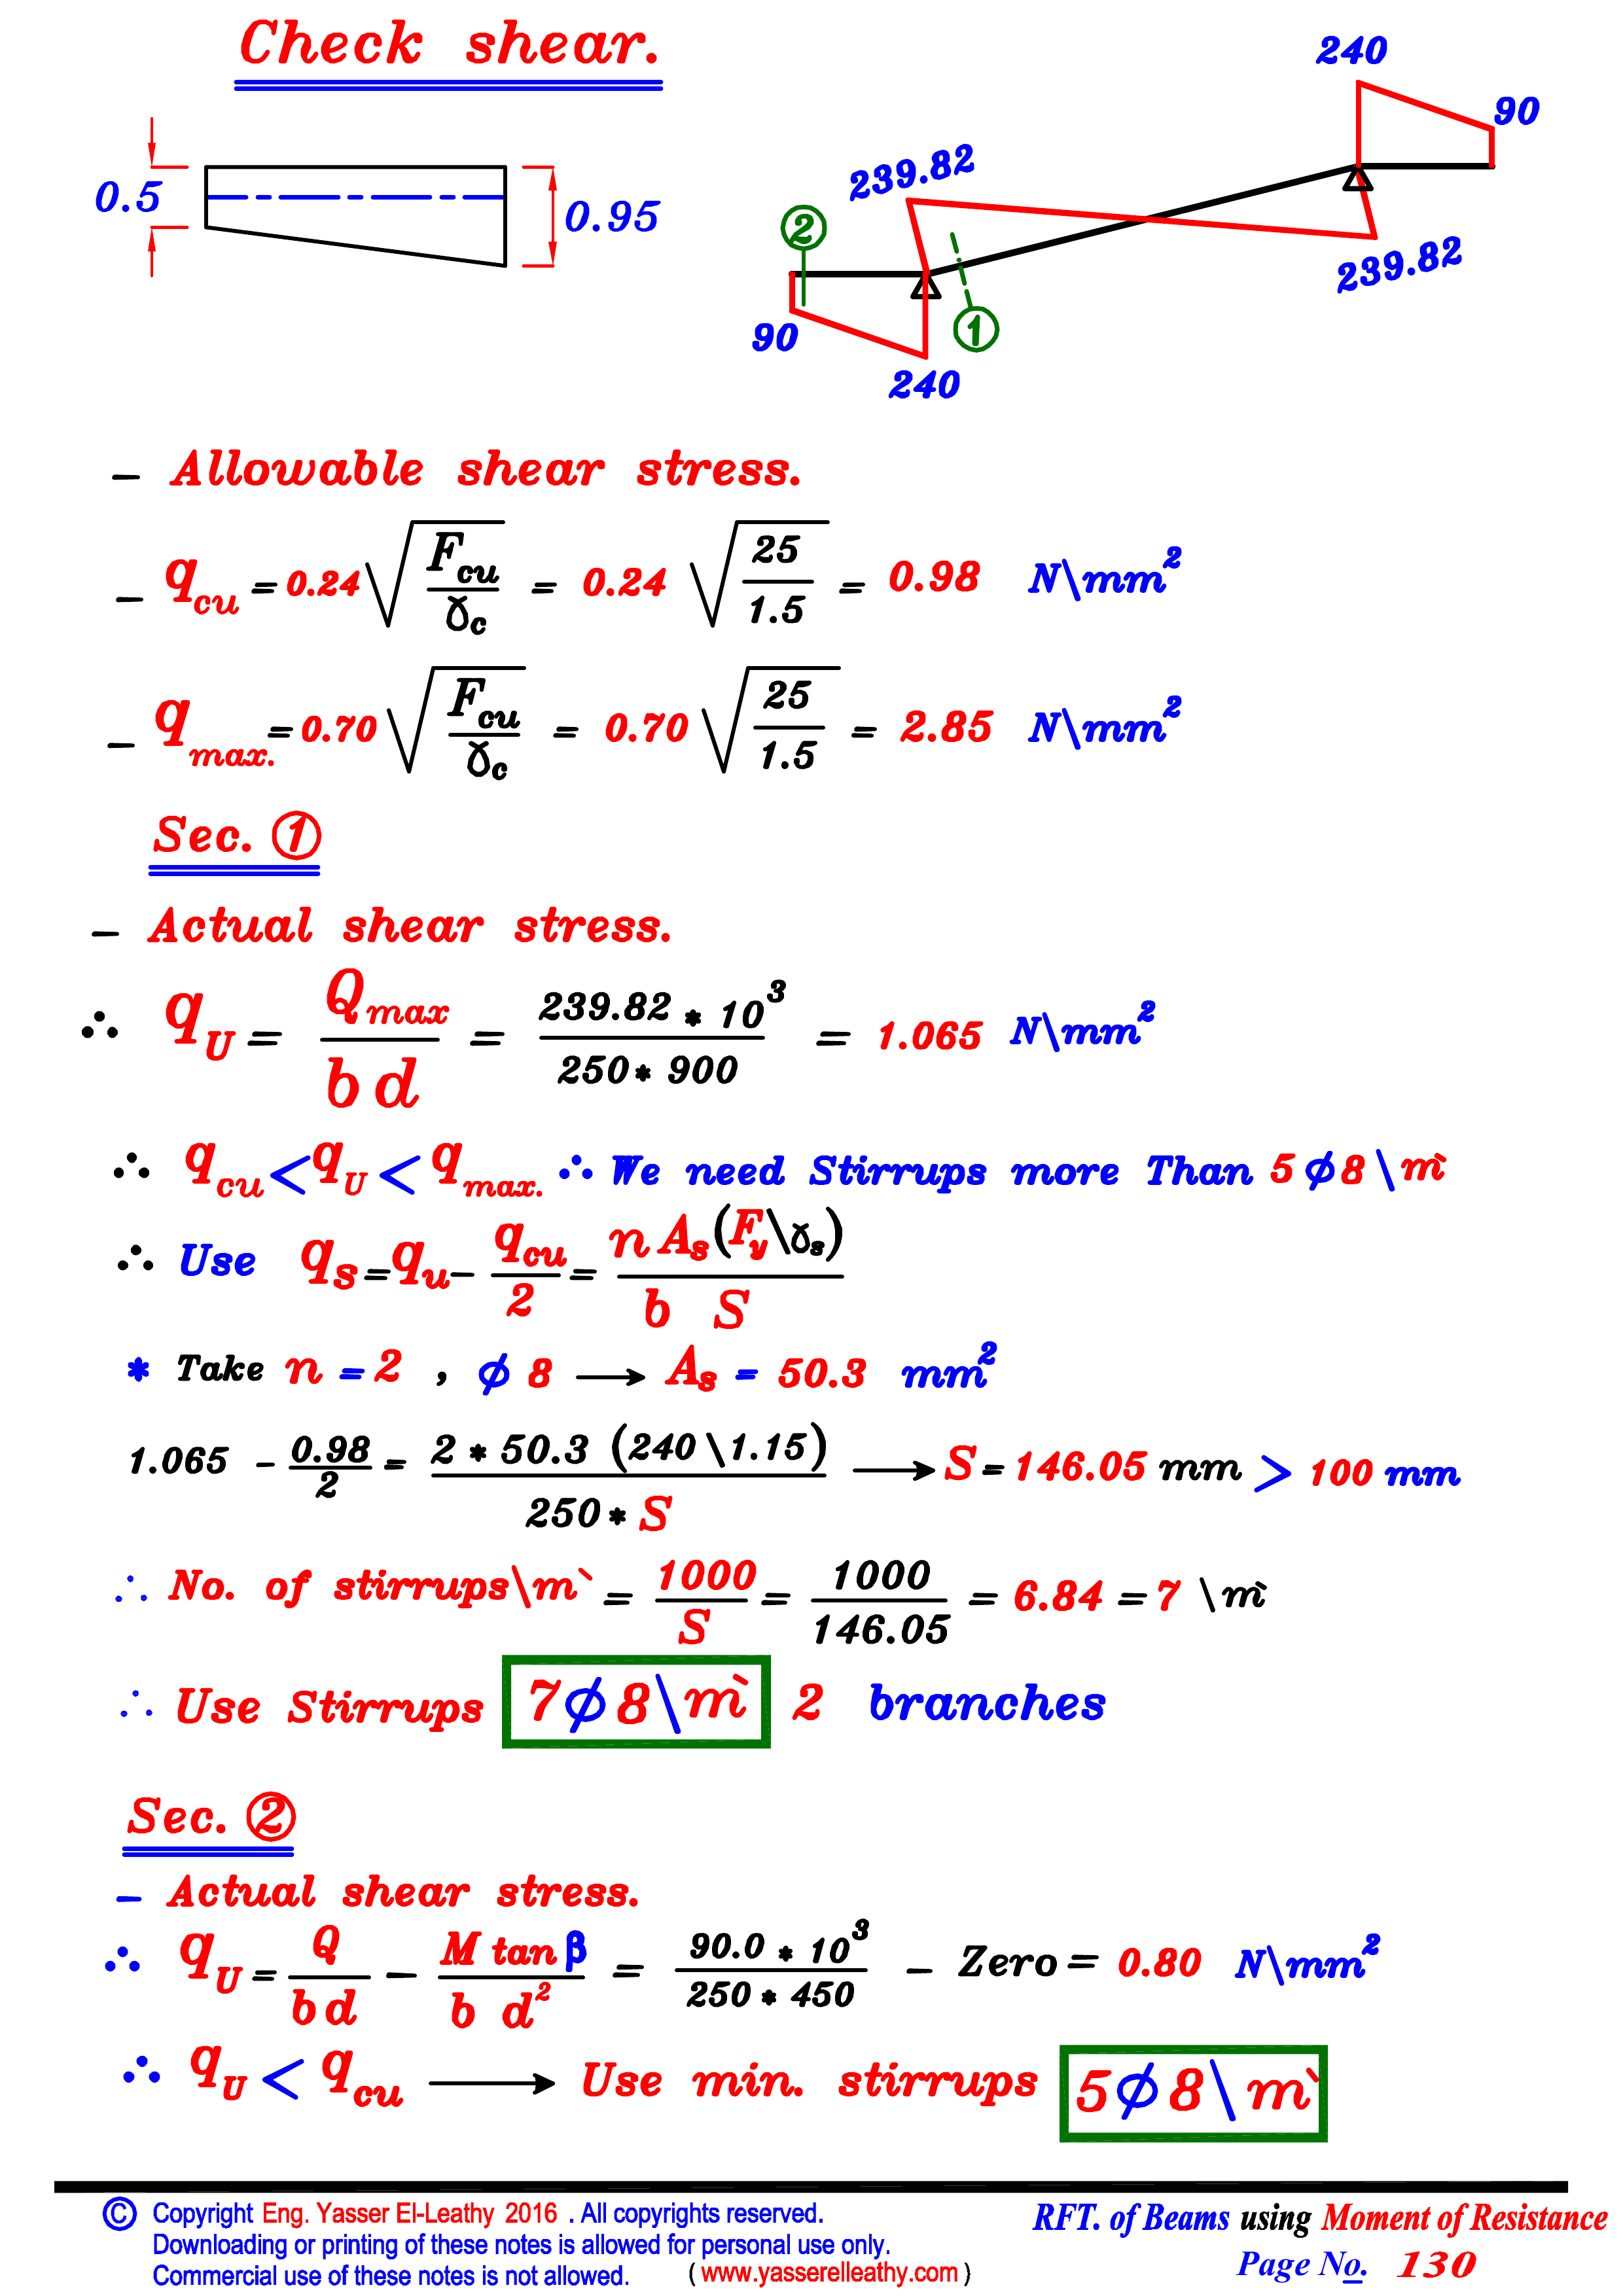 Check shear.
240
90
239.82
0.5
0.95
2
239.82
1
90
240
- Allowable shear stress.
- q_cu = 0.24 √(F_cu / γ_c) = 0.24 √(25 / 1.5) = 0.98 N\mm²
- q_max. = 0.70 √(F_cu / γ_c) = 0.70 √(25 / 1.5) = 2.85 N\mm²
Sec. ①
- Actual shear stress.
∴ q_U = Q_max / b d = 239.82 * 10³ / 250 * 900 = 1.065 N\mm²
∴ q_cu < q_U < q_max. ∴ We need Stirrups more Than 5 ϕ 8 \ m`
∴ Use q_s = q_u - q_cu / 2 = n A_s (F_y \ γ_s) / b S
* Take n = 2 , ϕ 8 → A_s = 50.3 mm²
1.065 - 0.98 / 2 = 2 * 50.3 (240 \ 1.15) / 250 * S → S = 146.05 mm > 100 mm
∴ No. of stirrups\m` = 1000 / S = 1000 / 146.05 = 6.84 = 7 \m`
∴ Use Stirrups 7 ϕ 8 \ m` 2 branches
Sec. ②
- Actual shear stress.
∴ q_U = Q / b d - M tan β / b d² = 90.0 * 10³ / 250 * 450 - Zero = 0.80 N\mm²
∴ q_U < q_cu → Use min. stirrups 5 ϕ 8 \ m`
© Copyright Eng. Yasser El-Leathy 2016 . All copyrights reserved.
Downloading or printing of these notes is allowed for personal use only.
Commercial use of these notes is not allowed. ( www.yasserelleathy.com )
RFT. of Beams using Moment of Resistance
Page No. 130